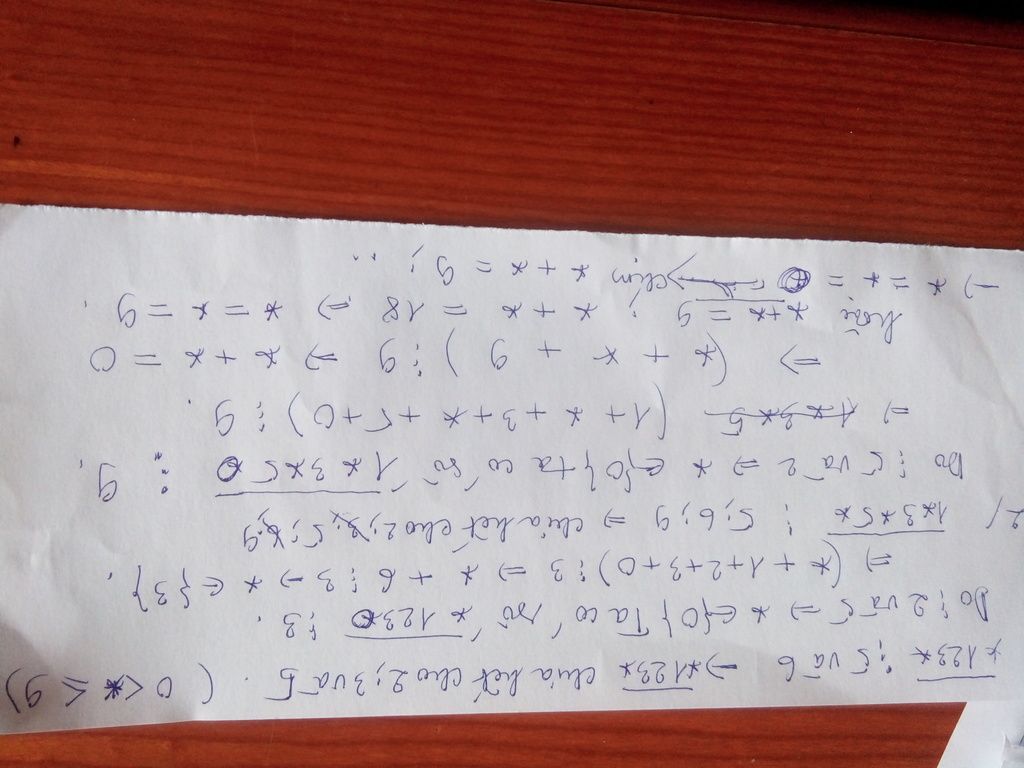 *123* ⋮ 5 và 6 → *123* chia hết cho 2; 3 và 5. (0 < * ≤ 9)
Do ⋮ 2 và 5 ⇒ * ∈ {0} Ta có số *1230 ⋮ 3.
⇒ (* + 1+2+3+0) ⋮ 3 ⇒ * + 6 ⋮ 3 → * ∈ {3}.
2/ 1*3*5* ⋮ 5; 6; 9 ⇒ chia hết cho 2; 3; 5; 6; 9
Do ⋮ 5 và 2 ⇒ * ∈ {0} ta có số 1*3*50 ⋮ 9.
⇒ 1*3*5 (1+*+3+*+5+0) ⋮ 9.
⇒ (* + * + 9) ⋮ 9 ⇒ * + * = 0
hoặc *+* = 9 ; * + * = 18 ⇒ * = * = 9.
→ * = * = 0 * + * = 9 ; ...